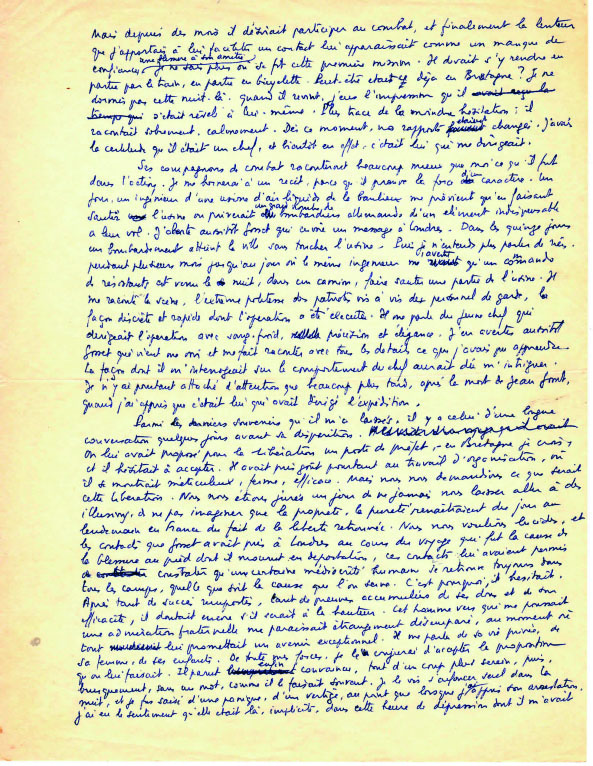 Mais depuis des mois il désirait participer au combat, et finalement la lenteur
que j'apportais à lui faciliter un contact lui apparaissait comme un manque de
confiance, une blessure à son amitié. Je ne sais plus où se fit cette première mission. Il devait s'y rendre en
partie par le train, en partie en bicyclette. Peut-être était-ce déjà en Bretagne ? Je ne
dormis pas cette nuit-là. Quand il revint, j'eus l'impression qu'il
s'était révélé à lui-même. Plus trace de la moindre hésitation : il
racontait sobrement, calmement. Dès ce moment, nos rapports étaient changés. J'avais
la certitude qu'il était un chef, et bientôt en effet, c'était lui qui me dirigeait.
Ses compagnons de combat raconteront beaucoup mieux que moi ce qu'il fut
dans l'action. Je me bornerai à un récit, parce qu'il prouve la force d'un caractère. Un
jour, un ingénieur d'une usine d'air liquide de la banlieue me prévient qu'en faisant
sauter l'usine on priverait un grand nombre de bombardiers allemands d'un élément indispensable
à leur vol. J'alerte aussitôt Gosset qui envoie un message à Londres. Dans les quinze jours
un bombardement atteint la ville sans toucher l'usine. Puis je n'entends plus parler de rien
pendant plusieurs mois jusqu'au jour où le même ingénieur m'avertit qu'un commando
de résistants est venu la nuit, dans un camion, faire sauter une partie de l'usine. Il
me raconte la scène, l'extrême politesse des patriotes vis à vis du personnel de garde, la
façon discrète et rapide dont l'opération a été exécutée. Il me parle du jeune chef qui
dirigeait l'opération avec sang-froid, précision et élégance. J'en avertis aussitôt
Gosset qui vient me voir et me fait raconter avec tous les détails ce que j'avais pu apprendre.
La façon dont il m'interrogeait sur le comportement du chef aurait dû m'intriguer.
Je n'y ai pourtant attaché d'attention que beaucoup plus tard, après la mort de Jean Gosset,
quand j'ai appris que c'était lui qui avait dirigé l'expédition.
Parmi les derniers souvenirs qu'il m'a laissés, il y a celui d'une longue
conversation quelques jours avant sa disparition.
On lui avait proposé pour la Libération un poste de préfet, - en Bretagne je crois,
et il hésitait à accepter. Il avait pris goût pourtant au travail d'organisation, où
il se montrait méticuleux, ferme, efficace. Mais nous nous demandions ce que serait
cette libération. Nous nous étions jurés un jour de ne jamais nous laisser aller à des
illusions, de ne pas imaginer que la propreté, la pureté renaîtraient du jour au
lendemain en France du fait de la liberté retrouvée. Nous nous voulions lucides, et
les contacts que Gosset avait pris à Londres au cours du voyage qui fut la cause de
la blessure au pied dont il mourut en déportation, ces contacts lui avaient permis
de constater qu'une certaine médiocrité humaine se retrouve toujours dans
tous les camps, quelle que soit la cause que l'on serve. C'est pourquoi, il hésitait.
Après tant de succès remportés, tant de preuves accumulées de ses dons et de son
efficacité, il doutait encore s'il serait à la hauteur. Cet homme vers qui me poussait
une admiration fraternelle me paraissait étrangement désemparé, au moment où
tout lui promettait un avenir exceptionnel. Il me parla de sa vie privée, de
sa femme, de ses enfants. De toutes mes forces, je le conjurai d'accepter la proposition
qu'on lui faisait. Il parut enfin convaincu, tout d'un coup plus serein, puis,
brusquement, sans un mot, comme il le faisait souvent. Je le vis s'enfoncer seul dans la
nuit, et je fus saisi d'une panique, d'un vertige, au point que lorsque j'appris son arrestation,
j'ai eu le sentiment qu'elle était là, implicite, dans cette heure de dépression dont il m'avait